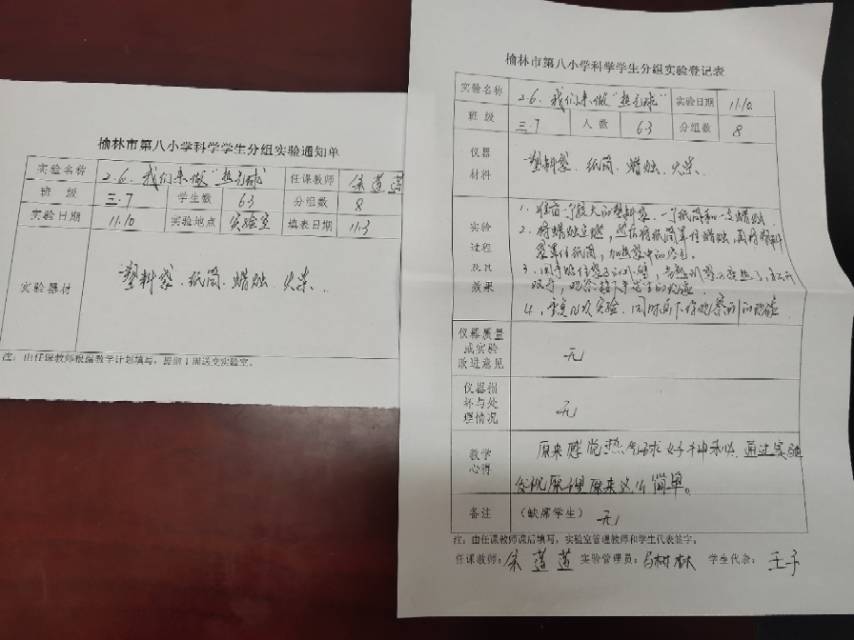 榆林市第八小学科学学生分组实验通知单
实验名称 2.6.我们来做"热气球" 任课教师
班 级 三.7 学生数 63 分组数 8
实验日期 11.10 实验地点 实验室 填表日期 11.3
实验器材 塑料袋.纸筒.蜡烛.火柴.
注：由任课教师根据教学计划填写，提前1周送交实验室。
榆林市第八小学科学学生分组实验登记表
实验名称 2.6.我们来做"热气球" 实验日期 11.10
班 级 三.7 人 数 63 分组数 8
仪器材料 塑料袋.纸筒.蜡烛.火柴.
实验过程及其效果
1.准备一个较大的塑料袋.一个纸筒和一支蜡烛.
2.将蜡烛点燃,然后将纸筒罩住蜡烛,再将塑料
袋罩住纸筒,加热袋中的空气.
3.用手触住袋子的外壁,当热到袋子变热了,
4.重复几次实验.同时画下你观察到的现象
仪器质量或实验改进意见 无
仪器损坏与处理情况 无
教学心得 原来感觉热气球好神秘.通过实验
发现原理原来这么简单。
备注 （缺席学生） 无
注：由任课教师课后填写，实验室管理教师和学生代表签字。
任课教师： 实验管理员： 学生代表：